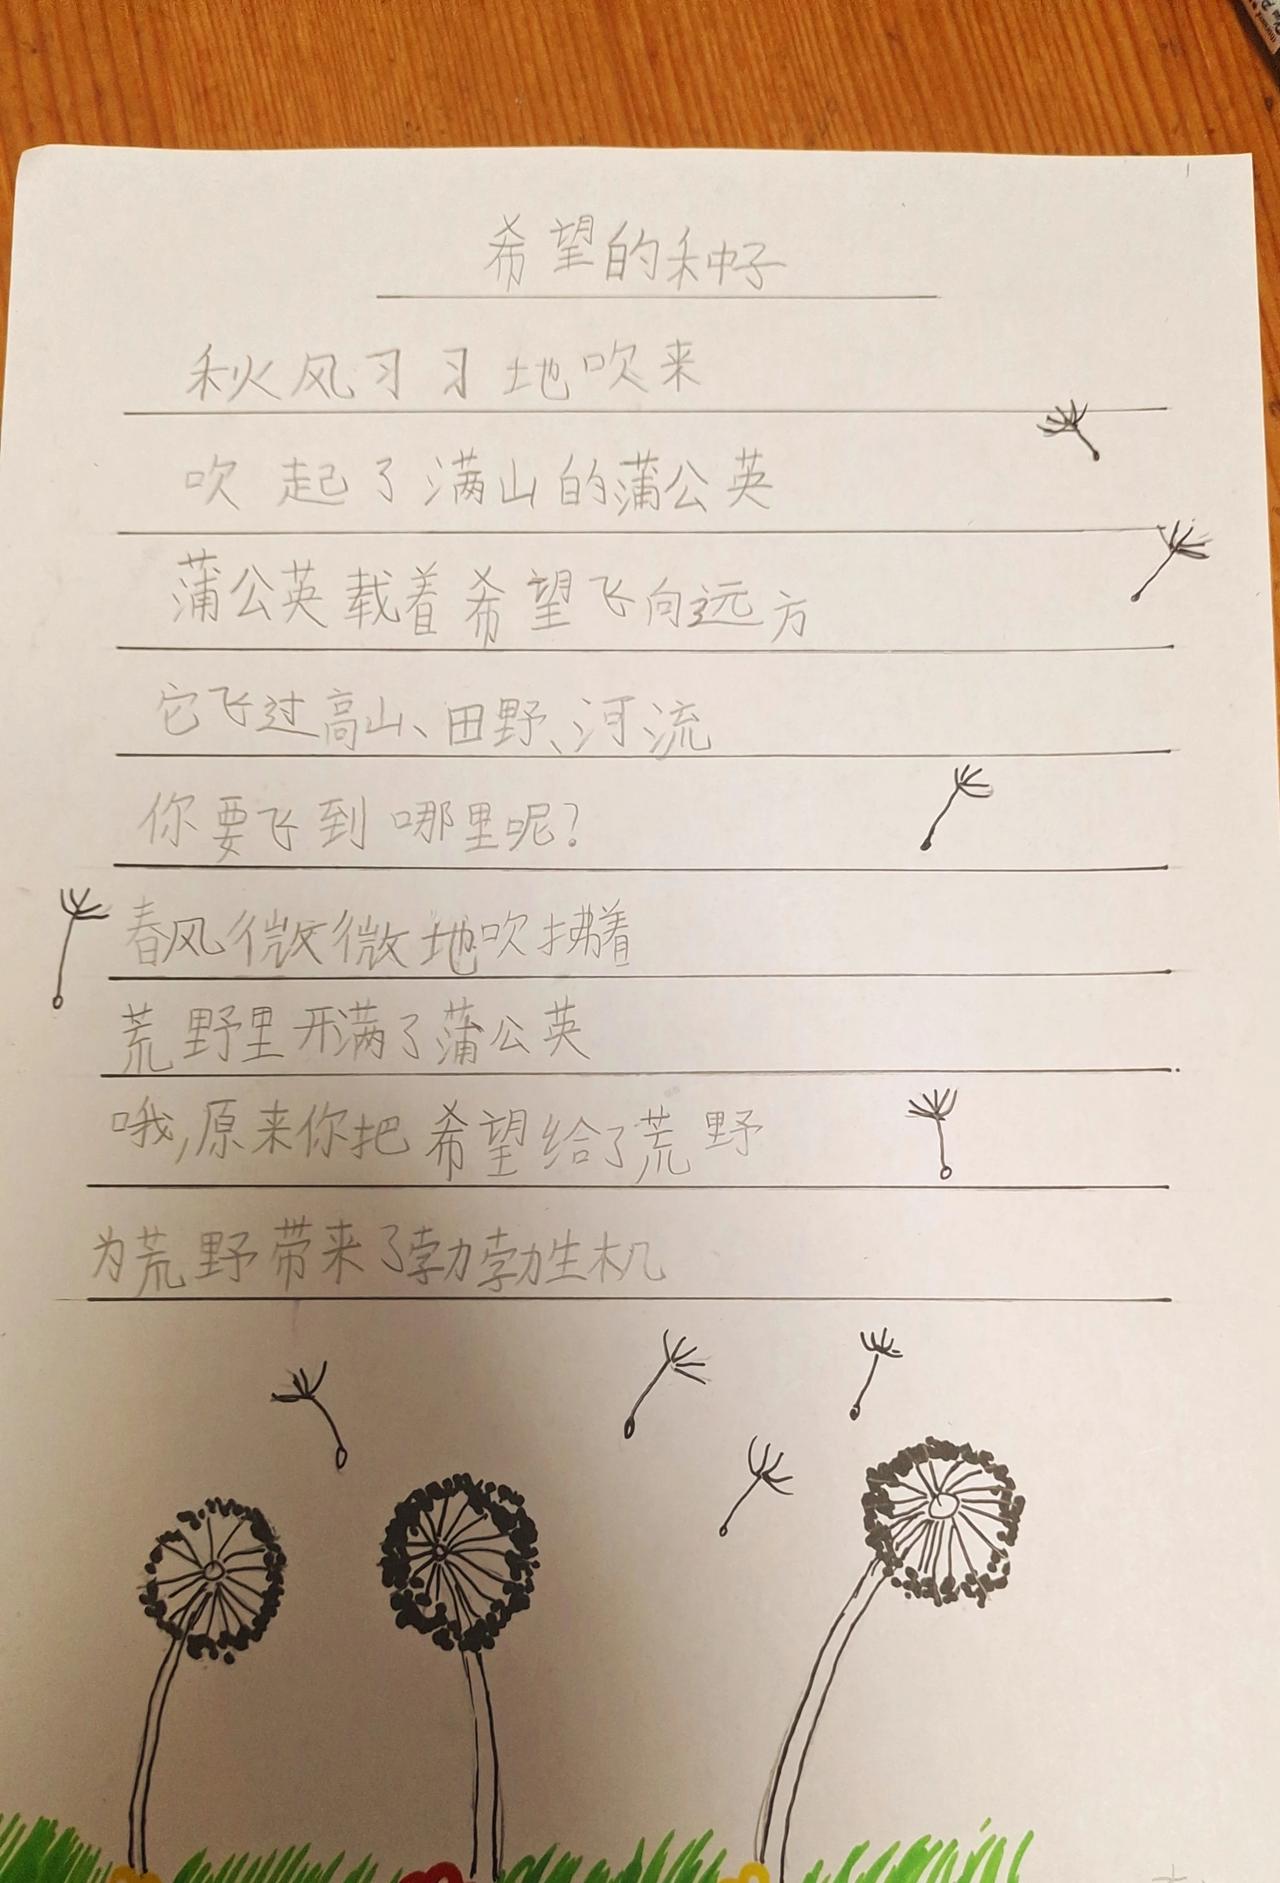 希望的种子
秋风习习地吹来
吹起了满山的蒲公英
蒲公英载着希望飞向远方
它飞过高山、田野、河流
你要飞到哪里呢?
春风微微地吹拂着
荒野里开满了蒲公英
哦,原来你把希望给了荒野
为荒野带来了勃勃生机